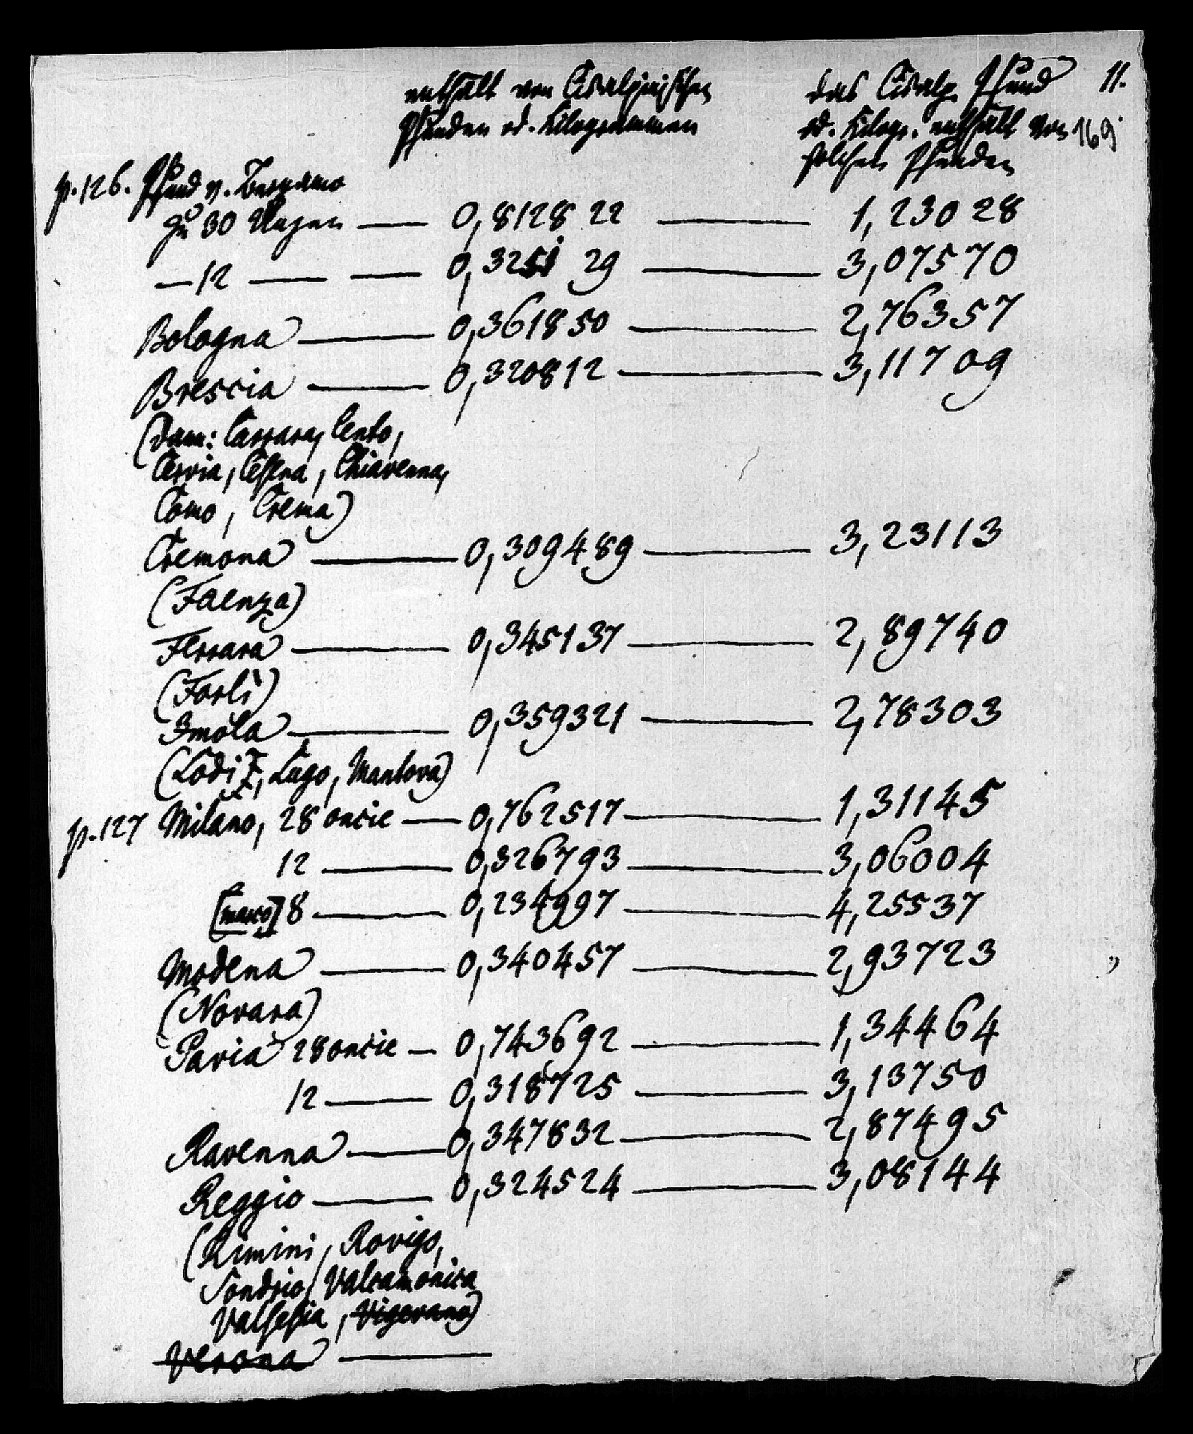 enthält von Cisalpinischen das Cisalp. Pfund 11.
Pfunden od. Kilogrammen od. Kilogr. enthält von 169
solchen Pfunden
p. 126. Pfund v. Bergamo
zu 30 Unzen — 0,812822 — 1,23028
— 12 — — 0,325129 — 3,07570
Bologna — 0,361850 — 2,76357
Brescia — 0,320812 — 3,11709
(dann: Carrara, Cento,
Cervia, Cesena, Chiavenna,
Como, Crema)
Cremona — 0,309489 — 3,23113
(Faenza)
Ferrara — 0,345137 — 2,89740
(Forli)
Imola — 0,359321 — 2,78303
(Lodi, Lugo, Mantova)
p. 127 Milano, 28 oncie — 0,762517 — 1,31145
12 — 0,326793 — 3,06004
[marco] 8 — 0,234997 — 4,25537
Modena — 0,340457 — 2,93723
(Novara)
Pavia 28 oncie — 0,743692 — 1,34464
12 — 0,318725 — 3,13750
Ravenna — 0,347832 — 2,87495
Reggio — 0,324524 — 3,08144
(Rimini, Rovigo,
Sondrio, Valcamonica
Valsesia, Vigevano)
Verona —